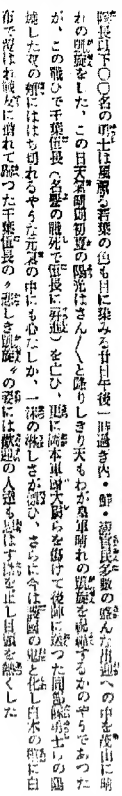 隊長以下〇〇名の勇士は風薫る若葉の色も目に染みる廿日午後一時過ぎ内・鮮・満官民多數の盛んな出迎への中を茂山に晴
れの凱旋をした、この日天氣晴朗初夏の陽光はさん／＼と降りしきり天もわが皇軍晴れの凱旋を祝福するかのやうであつた
が、この戰ひで千葉伍長（名譽の戰死で伍長に昇進）を亡ひ、更に岡本軍醫大尉らを傷けて後陣に送つた間島隊勇士らの陽
焼した頬にははち切れるやうな元氣の中にも心なしか、一抹の淋しさが漂ひ、さらに今は護國の鬼と化し白木の棺に白
布で覆はれ戰友に護られて歸つた千葉伍長の〝悲しき凱旋〟の姿には歡迎の人達も思はず襟を正し目頭を熱くした